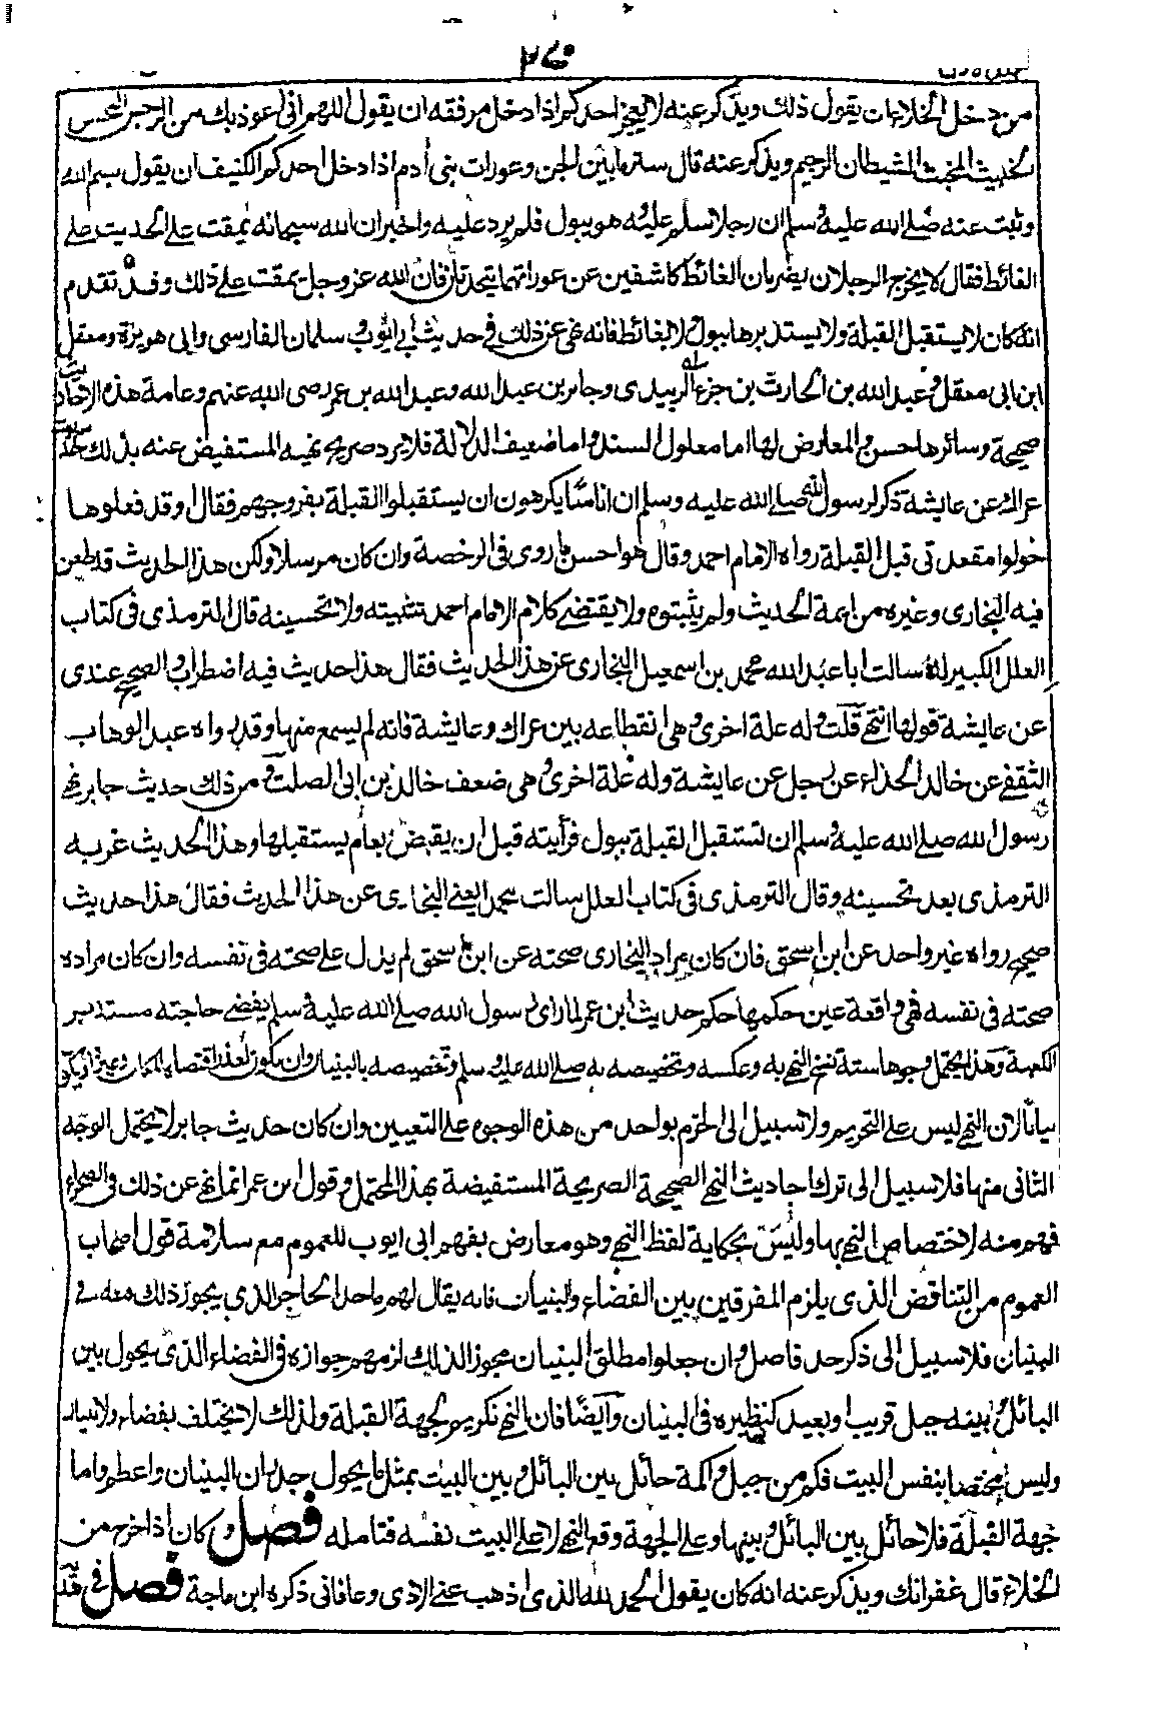 ٢٧٠
من دخل الخلاء ان يقول ذلك ويذكر عنه لا يعجز احدكم اذا دخل مرفقه ان يقول اللهم انى اعوذ بك من الرجس النجس
الخبيث المخبث الشيطان الرجيم ويذكر عنه قال ستر ما بين الجن وعورات بنى آدم اذا دخل احدكم الكنيف ان يقول بسم الله
وثبت عنه صلى الله عليه وسلم ان رجلا سلم عليه وهو يبول فلم يرد عليه واخبر ان الله سبحانه يمقت على الحديث على
الغائط فقال لا يخرج الرجلان يضربان الغائط كاشفين عن عوراتهما يتحدثان فان الله عز وجل يمقت على ذلك وقد تقدم
انه كان لا يستقبل القبلة ولا يستدبرها ببول ولا بغائط فانه نهى عن ذلك فى حديث ابى ايوب وسلمان الفارسى وابى هريرة ومعقل
ابن ابى معقل وعبد الله بن الحارث بن جزء الزبيدى وجابر بن عبد الله وعبد الله بن عمر رضى الله عنهم وعامة هذه الاحاديث
صحيحة وسائرها حسن والمعارض لها اما معلول السند واما ضعيف الدلالة فلا يرد صريح نهيه المستفيض عنه بذلك كحديث
عراك عن عايشة ذكر لرسول الله صلى الله عليه وسلم ان اناسا يكرهون ان يستقبلوا القبلة بفروجهم فقال اوقد فعلوها
حولوا مقعدتى قبل القبلة رواه الامام احمد وقال هو احسن ما روى فى الرخصة وان كان مرسلا ولكن هذا الحديث قد طعن
فيه البخارى وغيره من ائمة الحديث ولم يثبتوه ولا يقتضى كلام الامام احمد تثبيته ولا تحسينه قال الترمذى فى كتاب
العلل الكبير له سالت ابا عبد الله محمد بن اسمعيل البخارى عن هذا الحديث فقال هذا حديث فيه اضطراب والصحيح عندى
عن عايشة قولها انتهى قلت وله علة اخرى وهى انقطاعه بين عراك وعايشة فانه لم يسمع منها وقد رواه عبد الوهاب
الثقفى عن خالد الحذاء عن رجل عن عايشة وله علة اخرى وهى ضعف خالد بن ابى الصلت ومن ذلك حديث جابر نهى
رسول الله صلى الله عليه وسلم ان تستقبل القبلة ببول فرأيته قبل ان يقبض بعام يستقبلها وهذا الحديث غربه
الترمذى بعد تحسينه وقال الترمذى فى كتاب العلل سالت محمدا يعنى البخارى عن هذا الحديث فقال هذا حديث
صحيح رواه غير واحد عن ابن اسحق فان كان مراد البخارى صحته عن ابن اسحق لم يدل على صحته فى نفسه وان كان مراده
صحته فى نفسه فهى واقعة عين حكمها حكم حديث ابن عمر لما راى رسول الله صلى الله عليه وسلم يقضى حاجته مستدبر
الكعبة وهذا يحتمل وجوها ستة نسخ النهى به وعكسه وتخصيصه به صلى الله عليه وسلم وتخصيصه بالبنيان وان يكون لعذر اقتضاه المكان وغيره وان يكون
بيانا لان النهى ليس على التحريم ولا سبيل الى الجزم بواحد من هذه الوجوه على التعيين وان كان حديث جابر لا يحتمل الوجه
الثانى منها فلا سبيل الى ترك احاديث النهى الصحيحة الصريحة المستفيضة بهذا المحتمل وقول ابن عمر انما نهى عن ذلك فى الصحراء
فهم منه لاختصاص النهى بها وليس بحكاية لفظ النهى وهو معارض بفهم ابى ايوب للعموم مع سلامة قول اصحاب
العموم من التناقض الذى يلزم المفرقين بين الفضاء والبنيان فانه يقال لهم ما حد الحاجز الذى يجوز ذلك معه فى
البنيان فلا سبيل الى ذكر حد فاصل وان جعلوا مطلق البنيان مجوزا لذلك لزمهم جوازه فى الفضاء الذى يحول بين
البائل وبينه جبل قريب او بعيد كنظيره فى البنيان وايضا فان النهى تكريم لجهة القبلة ولذلك لا يختلف بفضاء ولا بنيان
وليس مختصا بنفس البيت فكم من جبل واكمة حائل بين البائل وبين البيت بمثل ما يحول جدران البنيان واعظم واما
جهة القبلة فلا حائل بين البائل وبينها وعلى الجهة وقع النهى لا على البيت نفسه فتامله فصل وكان اذا خرج من
الخلاء قال غفرانك ويذكر عنه انه كان يقول الحمد لله الذى اذهب عنى الاذى وعافانى ذكره ابن ماجة فصل فى